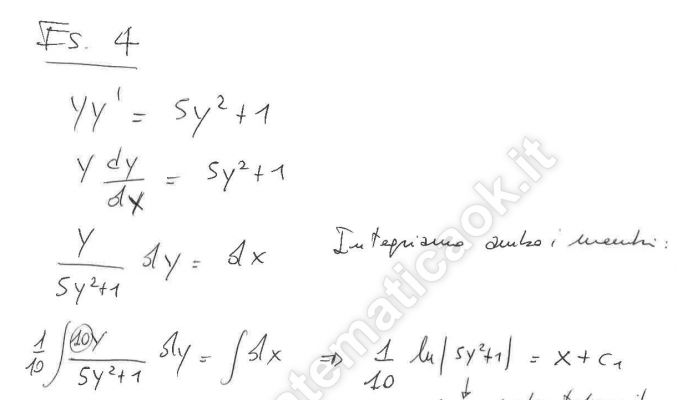 Es. 4
yy' = 5y²+1
y dy/dx = 5y²+1
y/(5y²+1) dy = dx Integriamo ambo i membri:
1/10 ∫ 10y/(5y²+1) dy = ∫ dx ⇒ 1/10 ln|5y²+1| = x + c₁
↓
matematicaok.it